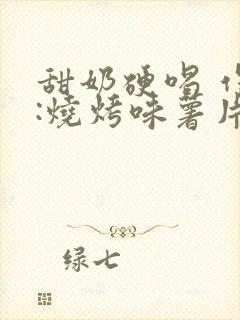 甜奶硬唱
:燒烤味薯片
绿七